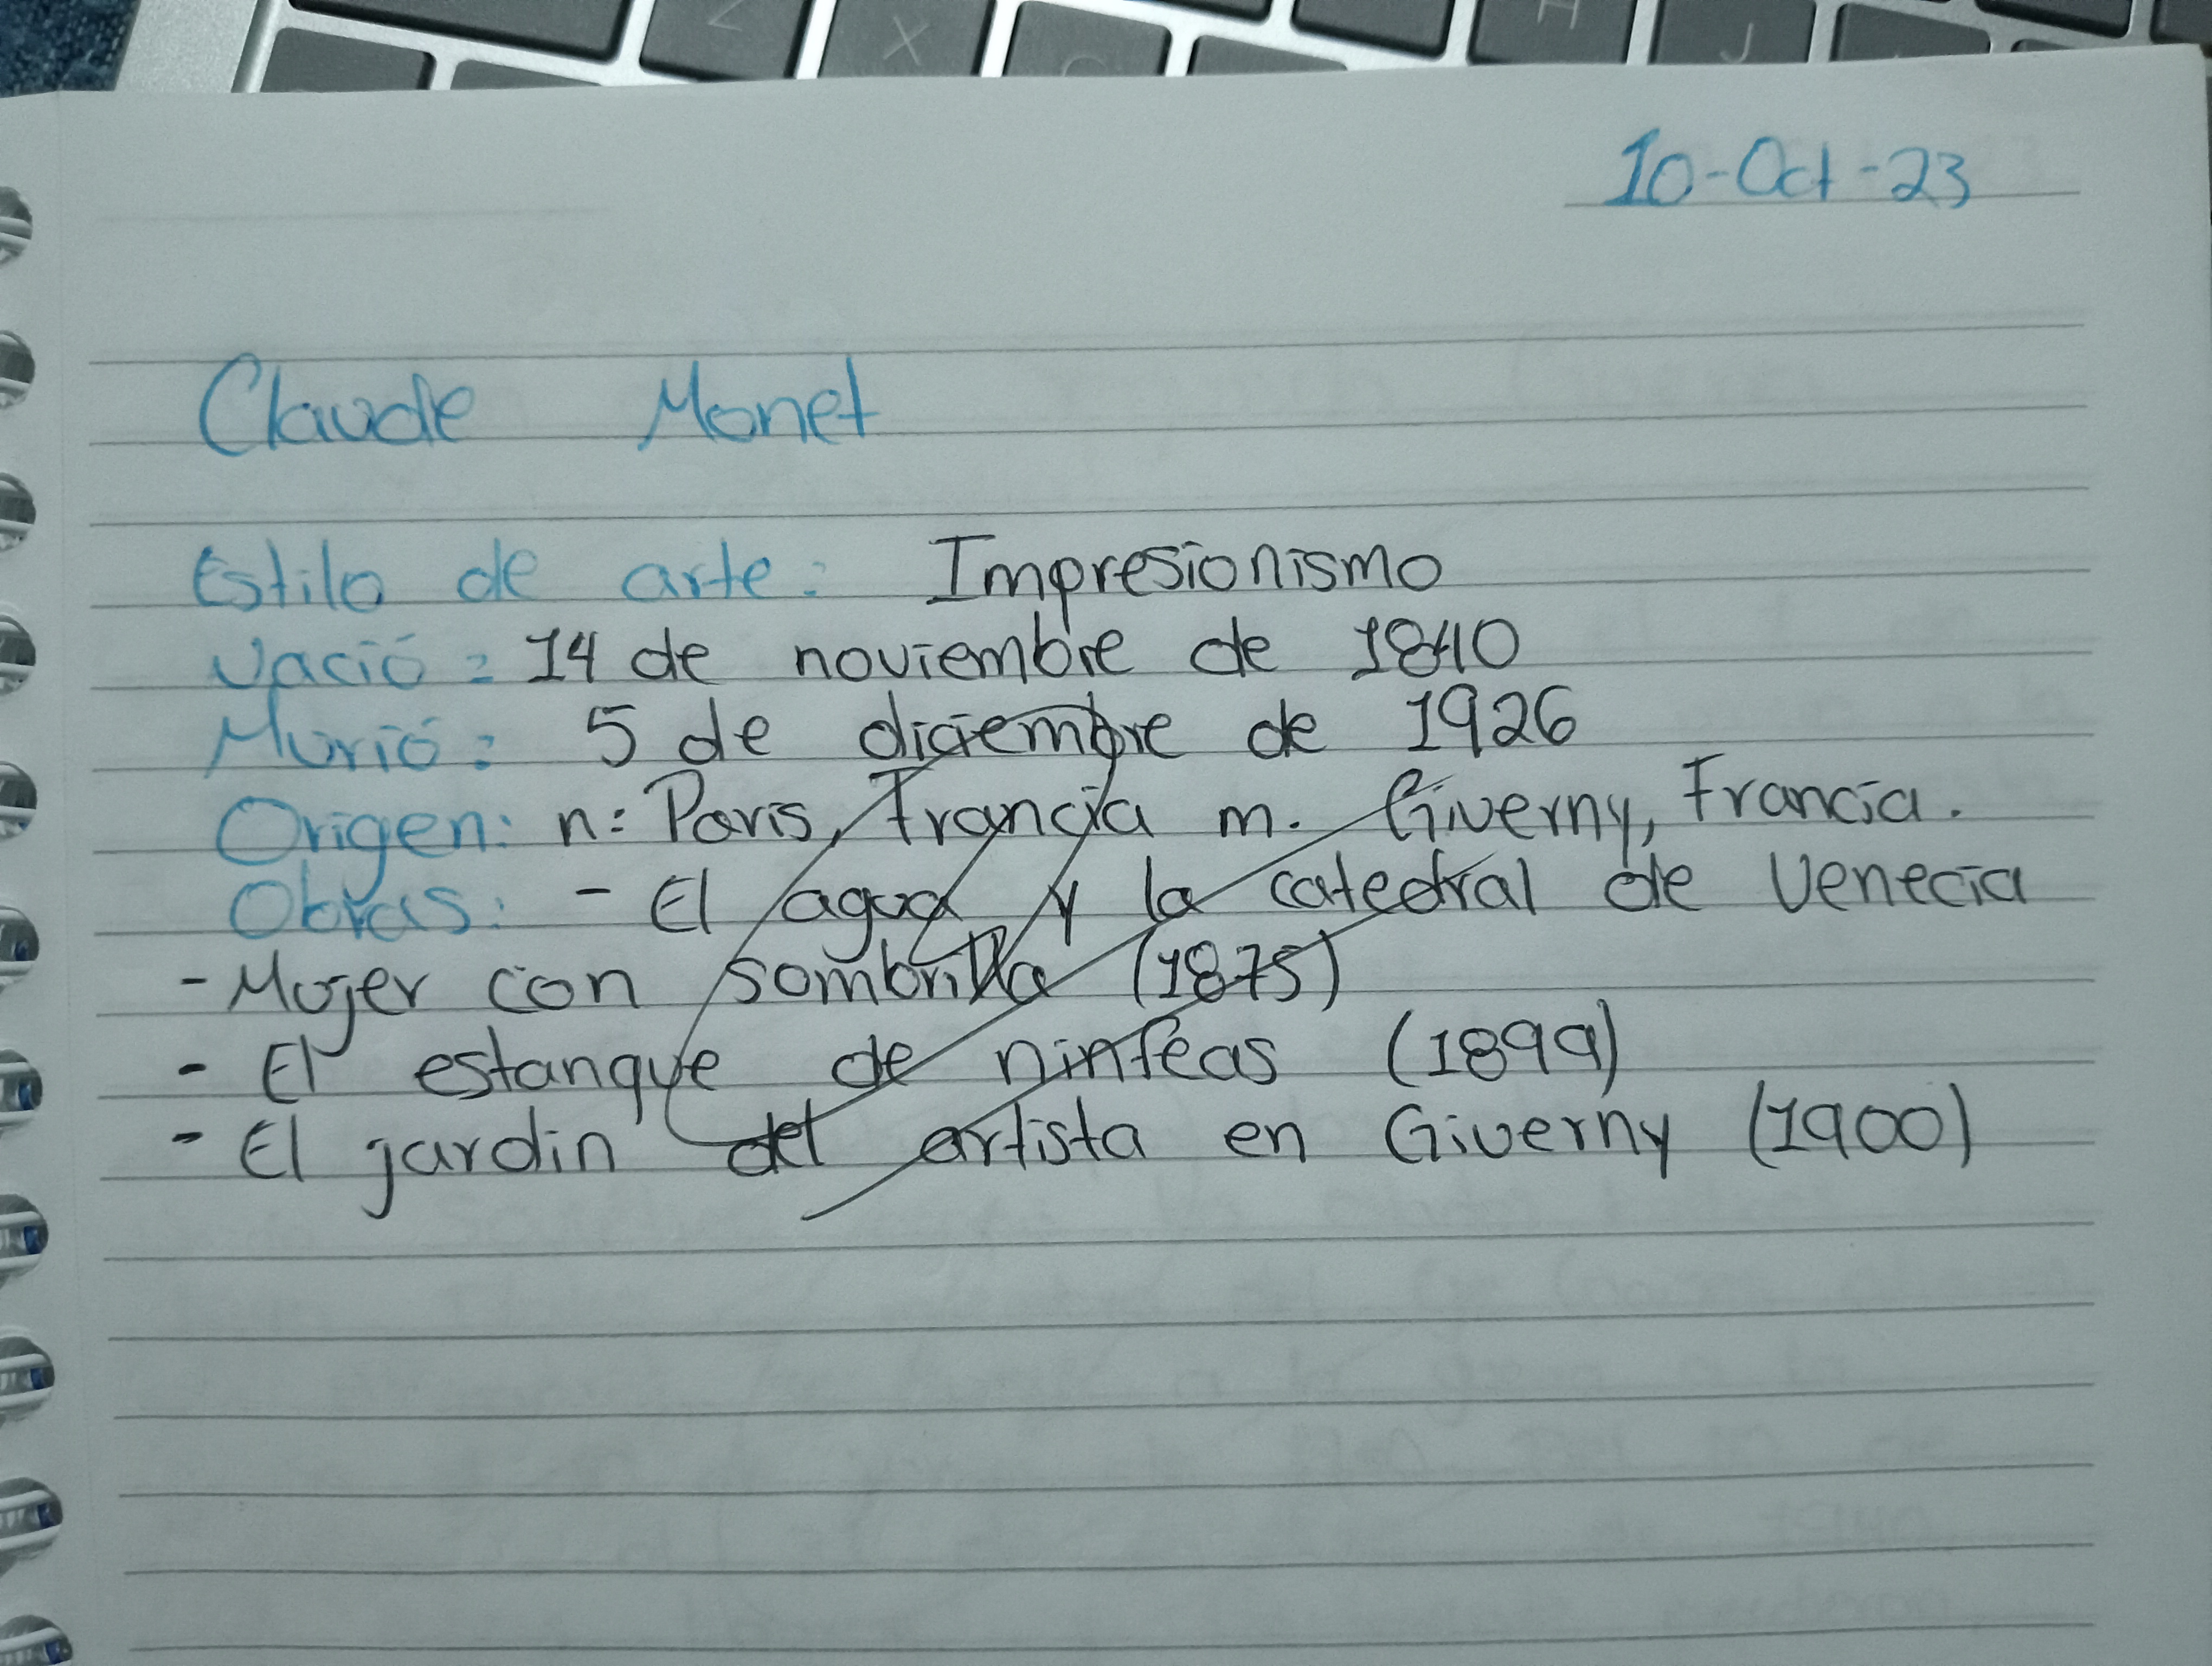 Z X C H J
10-Oct-23
Claude Monet
Estilo de arte: Impresionismo
Nació: 14 de noviembre de 1840
Murió: 5 de diciembre de 1926
Origen: n: Paris, Francia m. Giverny, Francia.
Obras: - El agua y la catedral de Venecia
- Mujer con sombrilla (1875)
- El estanque de ninfeas (1899)
- El jardin del artista en Giverny (1900)